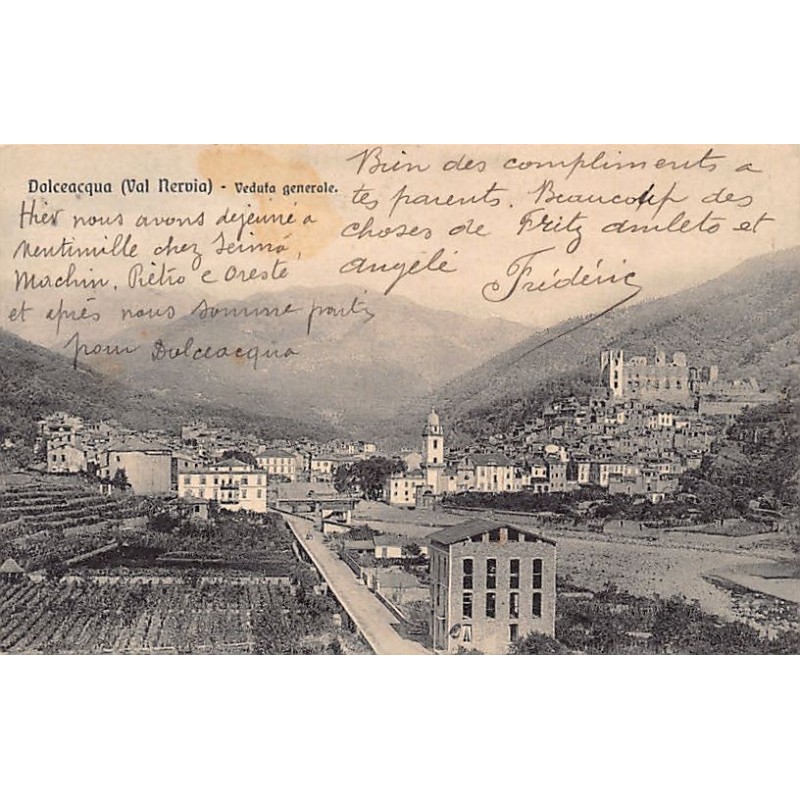 Dolceacqua (Val Nervia) - Veduta generale.
Hier nous avons dejeuné a
Mentimille chez
Machin, Piètro e Oreste
et après nous somme partis
pour Dolceacqua
Bien des compliments a
tes parents. Beaucoup des
choses de Fritz amleto et
angélé
Frédéric